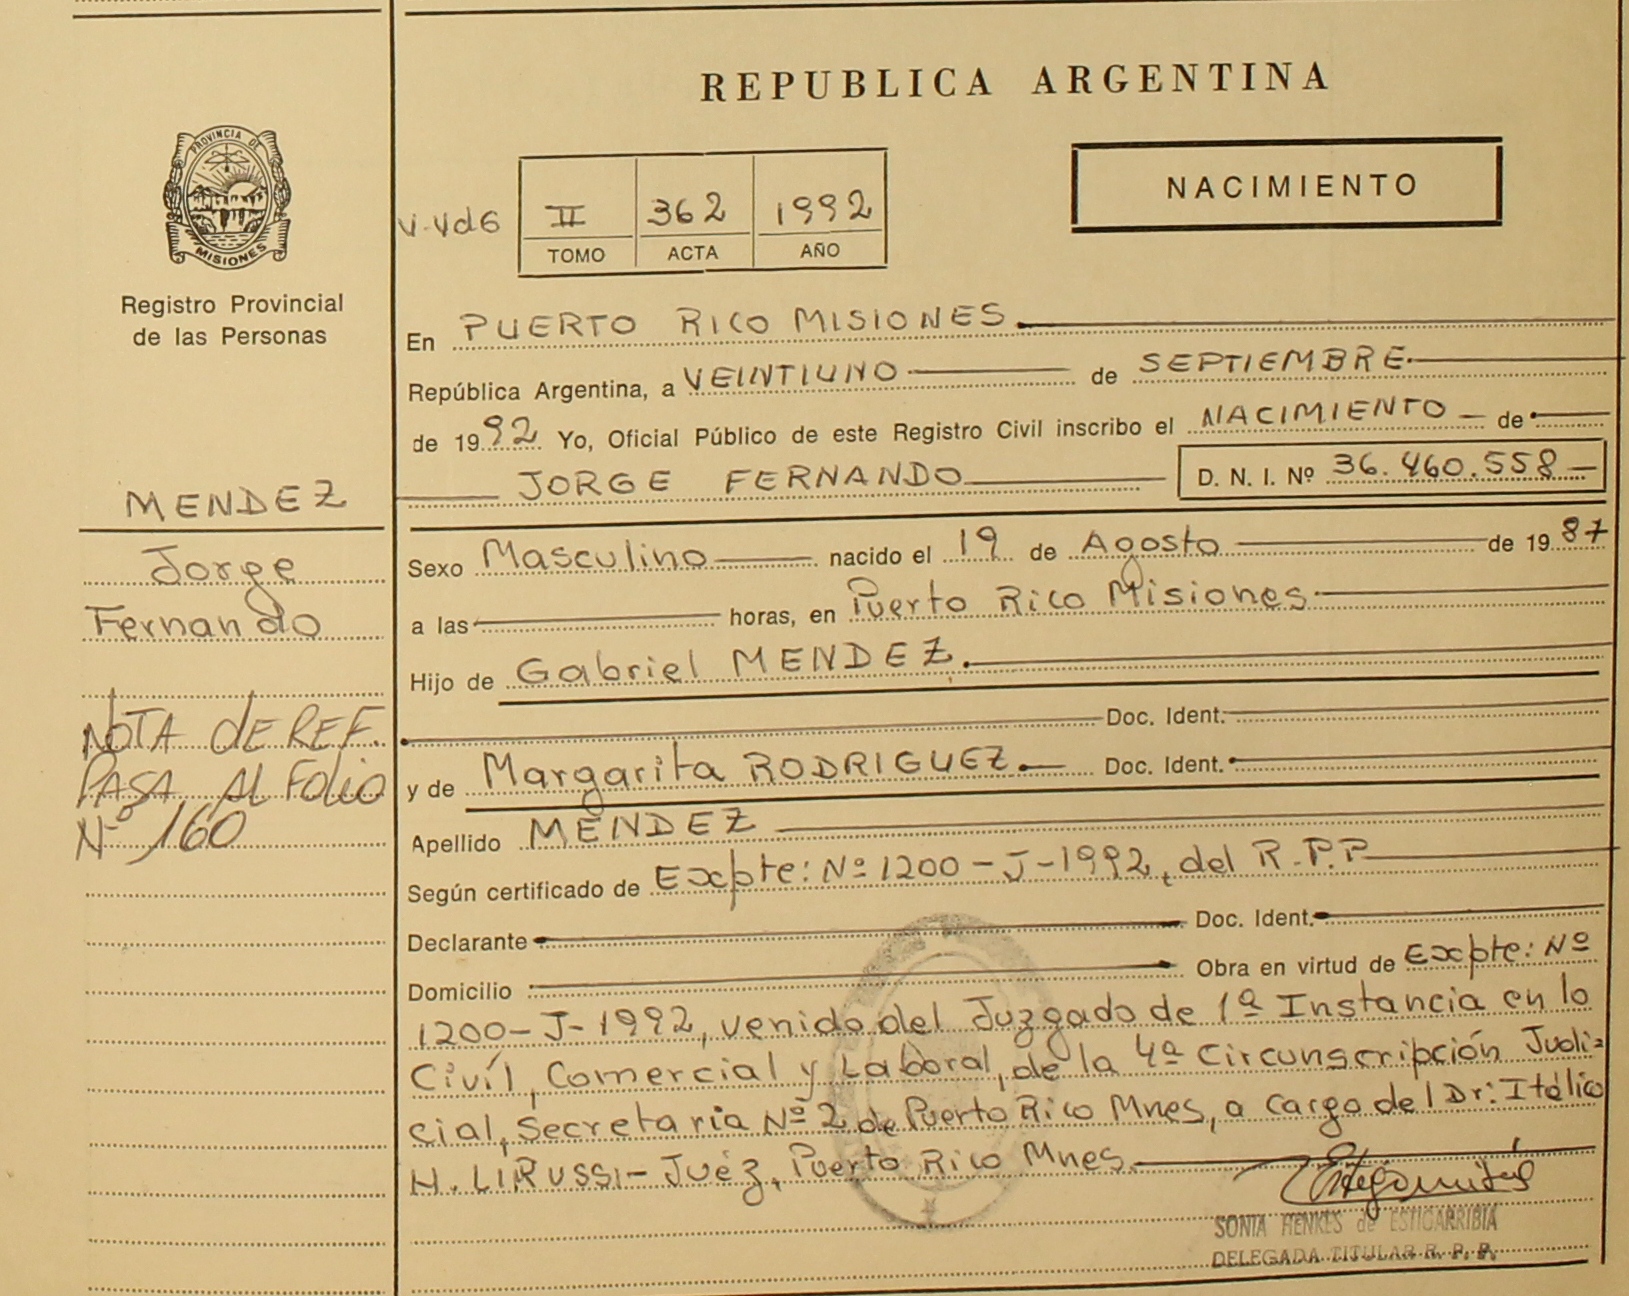 REPUBLICA ARGENTINA
PROVINCIA DE
MISIONES
Registro Provincial
de las Personas
NACIMIENTO
V-Vd6
II 362 1992
TOMO ACTA AÑO
En PUERTO RICO MISIONES
República Argentina, a VEINTIUNO de SEPTIEMBRE
de 1992 Yo, Oficial Público de este Registro Civil inscribo el NACIMIENTO de
JORGE FERNANDO D. N. I. Nº 36.460.558
MENDEZ
Jorge
Fernando
NOTA dE REF.
PASA AL Folio
Nº 160
Sexo Masculino nacido el 19 de Agosto de 1987
a las horas, en Puerto Rico Misiones
Hijo de Gabriel MENDEZ.
Doc. Ident.
y de Margarita RODRIGUEZ. Doc. Ident.
Apellido MENDEZ
Según certificado de Expte: Nº 1200-J-1992, del R.P.P
Declarante Doc. Ident.
Domicilio Obra en virtud de Expte: Nº
1200-J-1992, venido del Juzgado de 1ª Instancia en lo
Civíl, Comercial y Laboral, de la 4ª Circunscripción Judi=
cial, Secretaria Nº 2 de Puerto Rico Mnes, a cargo del Dr: Itálico
H. LIRUSSI- Juéz, Puerto Rico Mnes.
SONIA HENKES de ESTIGARRIBIA
DELEGADA TITULAR R. P. P.